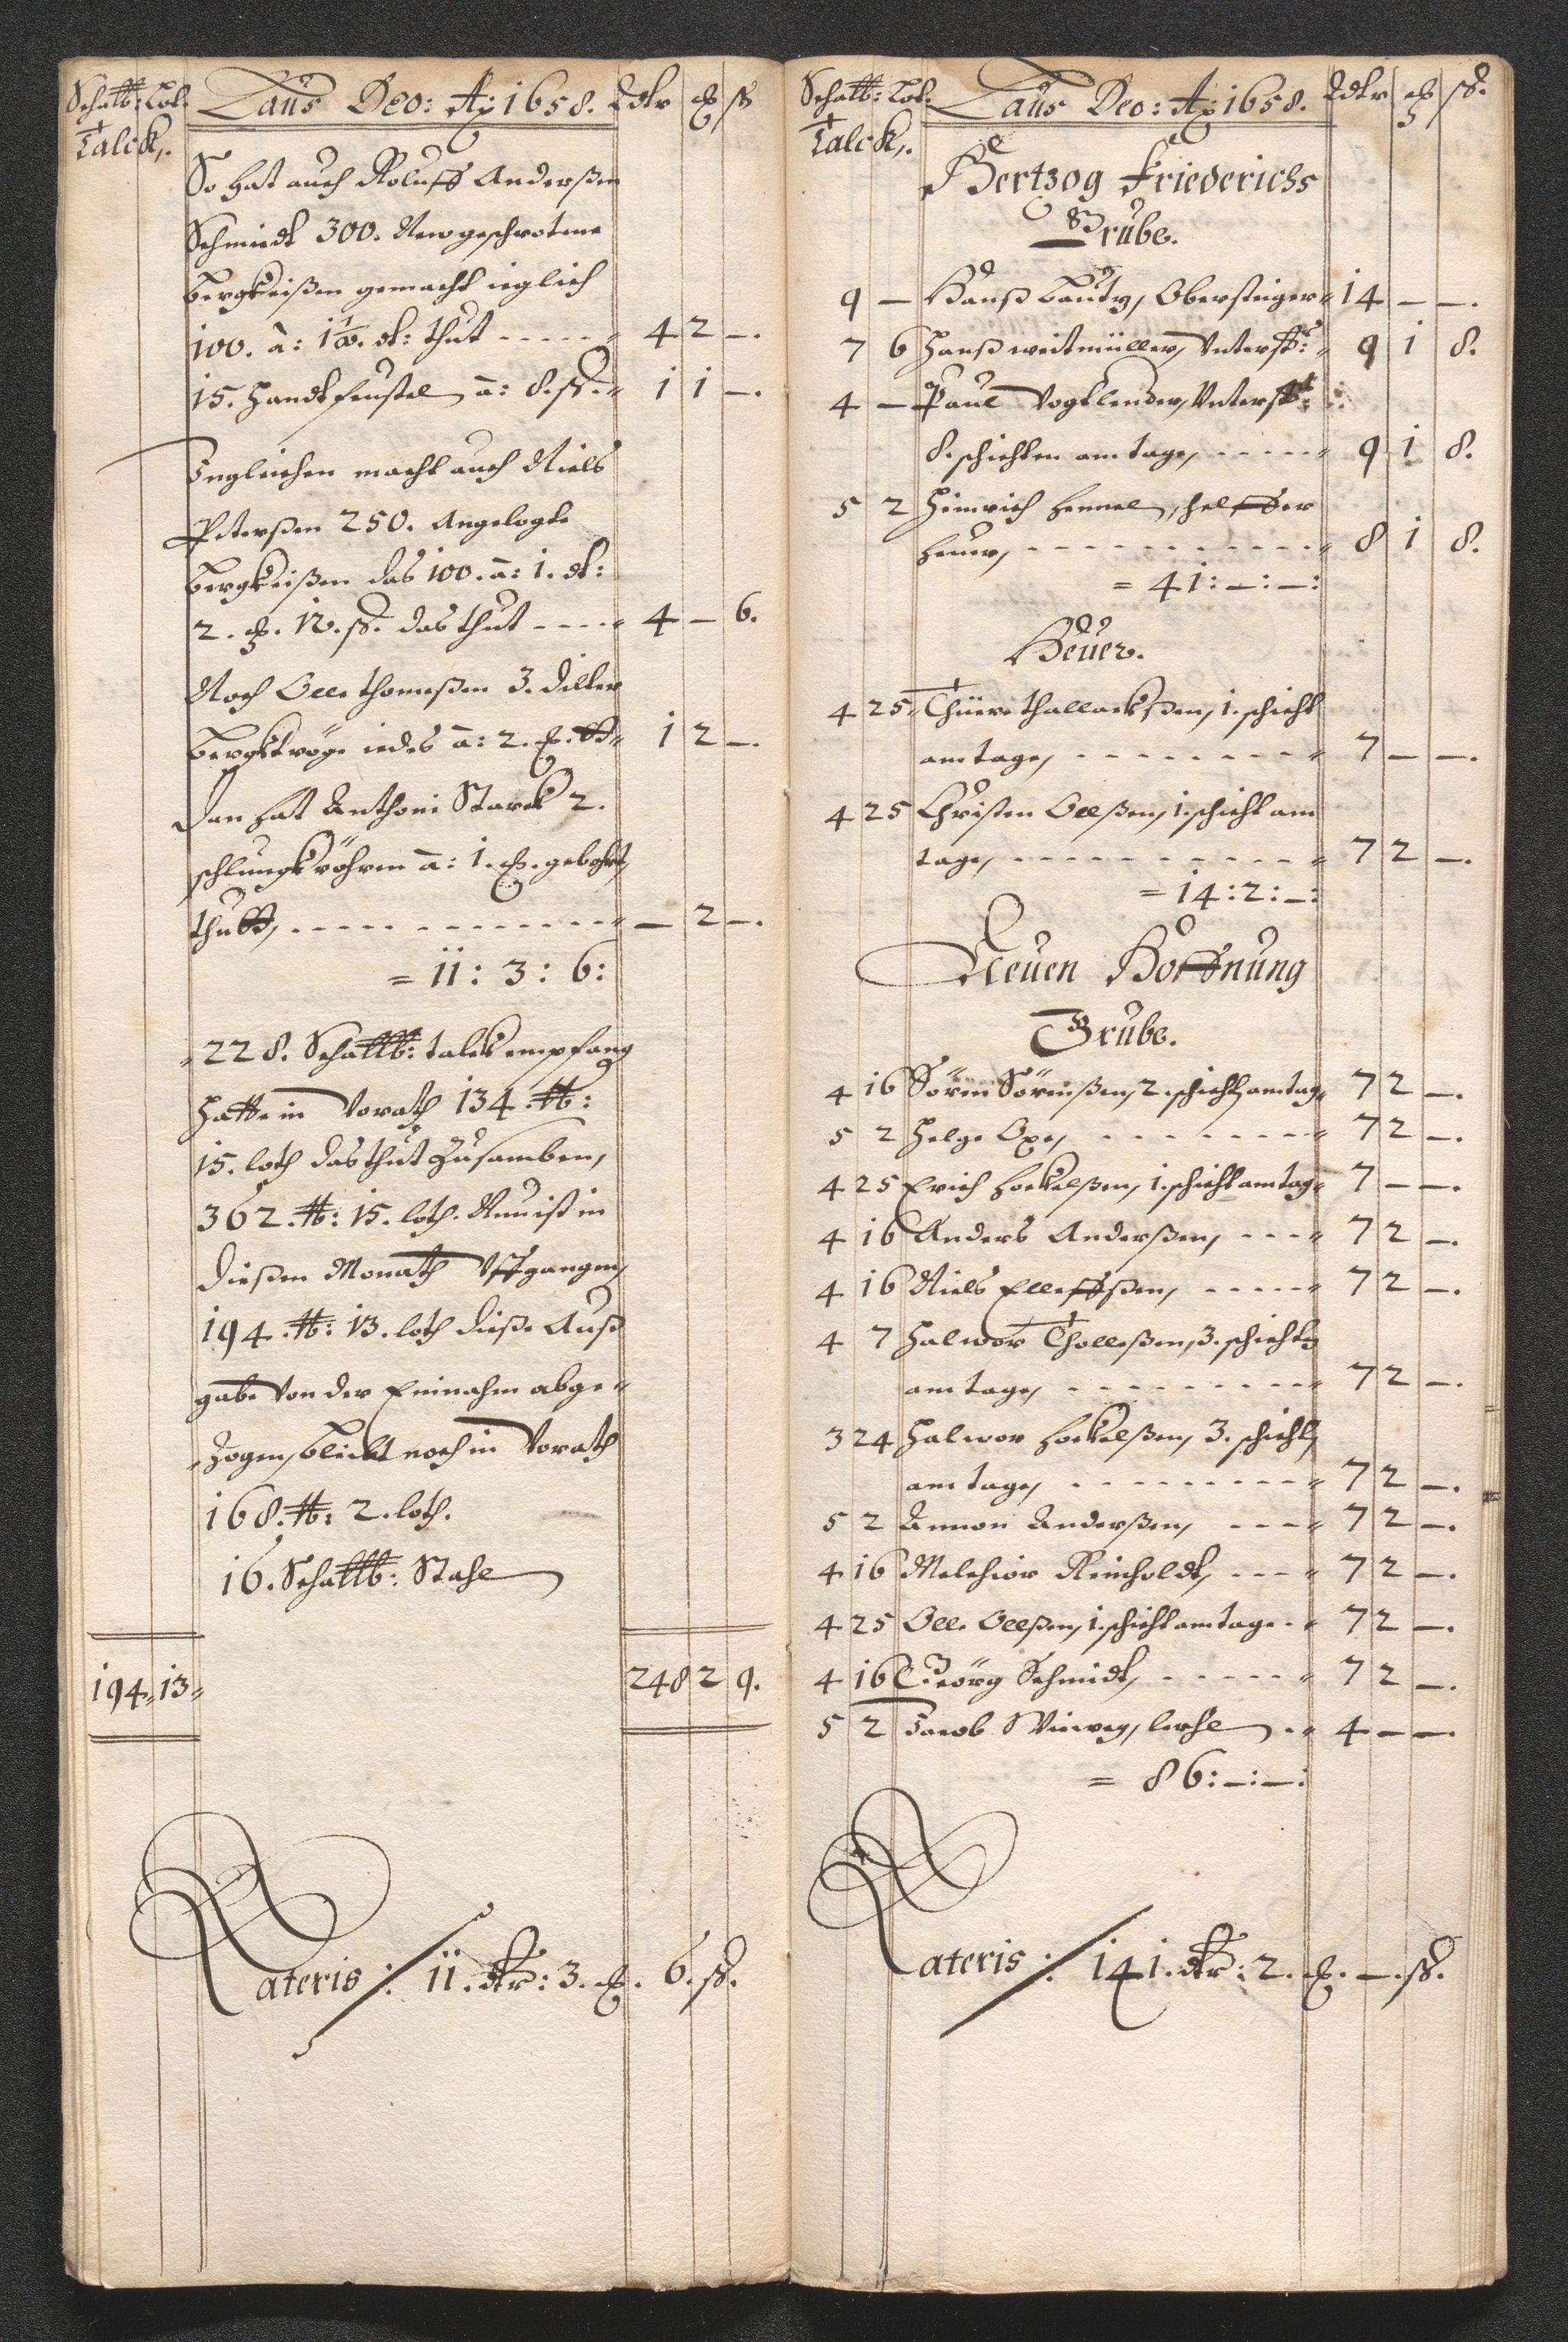 Schalb: Lot. Laus Deo: Ao 1658. Rdlr ₰ ß
Talck,
So hat auch Roluff Anderßen
Schmiedt 300. New geschrotene
Bergkeißen gemacht ieglich
100. à: 1½. dl: thut ----- 4 2 –.
15. Handtfeustel, à: 8. ß. 1 1 –.
Ingleichen macht auch Niels
Peterßen 250. Angelogte
Bergkeißen das 100. à: 1. dl:
2. ₰. 12. ß. das thut ---- 4 – 6.
Noch Olle thomeßen 3. diller
Bergktröge iedes à: 2. 1 2 –.
Dan hat Anthoni Starck 2.
schlungkröhren à: 1. gebohrt,
thutt, ----- ------- – 2 –.
= 11: 3: 6:
228. Schallb: talck empfang
Hatte in Vorath 134 ℔:
15. loth das thut Zusamben,
362. ℔: 15. loth. Nun ist in
dießen Monath Uffgangen,
194. ℔: 13. loth dieße Auß
gabe von der Einnahm abge-
Zogen, bleibt noch in Vorath
168. ℔: 2. loth.
16. Schallb: Stahl
194. 13 248 2 9.
Lateris: 11. dlr: 3. 6. ß.
Schalb: Lot. Laus Deo: Ao 1658. Rdlr ₰ ß.
Talck,
Hertzog Friederichs
Grube.
9 – Hanß Lautz, Obersteiger 14 – –.
7 6 Hanß weitmüller, Unterst: 9 1 8.
4 – Paul Vogtlender, Unterst:
8. schichten am tage, ----- 9 1 8.
5 2 Heinrich Hennel, helffer
heuer, ---------- 8 1 8.
= 41: –: –:
Heuer.
4 25 Thüere thallackßen, 1. schicht
am tage, -------- 7 – –.
4 25 Christen Olßen, 1. schicht am
tage, ---------- 7 2 –.
= 14: 2: –:
Neuen Hoffnung
Grube.
4 16 Sören Sörenßen, 2. schicht am tag 7 2 –.
5 2 Helge Oxe, ------- 7 2 –.
4 25 Erich Hockelßen, 1. schicht am tag 7 – –.
4 16 Anders Anderßen, --- 7 2 –.
4 16 Niels Elleffßen, ----- 7 2 –.
4 7 Halwor Tholleßen, 3. schicht
am tage, --------- 7 2 –.
3 24 Halwor Hockelßen, 3. schicht
am tage, --------- 7 2 –.
5 2 Ammon Anderßen, --- 7 2 –.
4 16 Melchior Reinholdt, --- 7 2 –.
4 25 Olle Olßen, 1. schicht am tage - 7 2 –.
4 16 Georg Schmidt, ----- 7 2 –.
5 2 Jacob Vieweg, leche 4 – –.
= 86: –: –:
Lateris: 141. dlr: 2. –. ß.